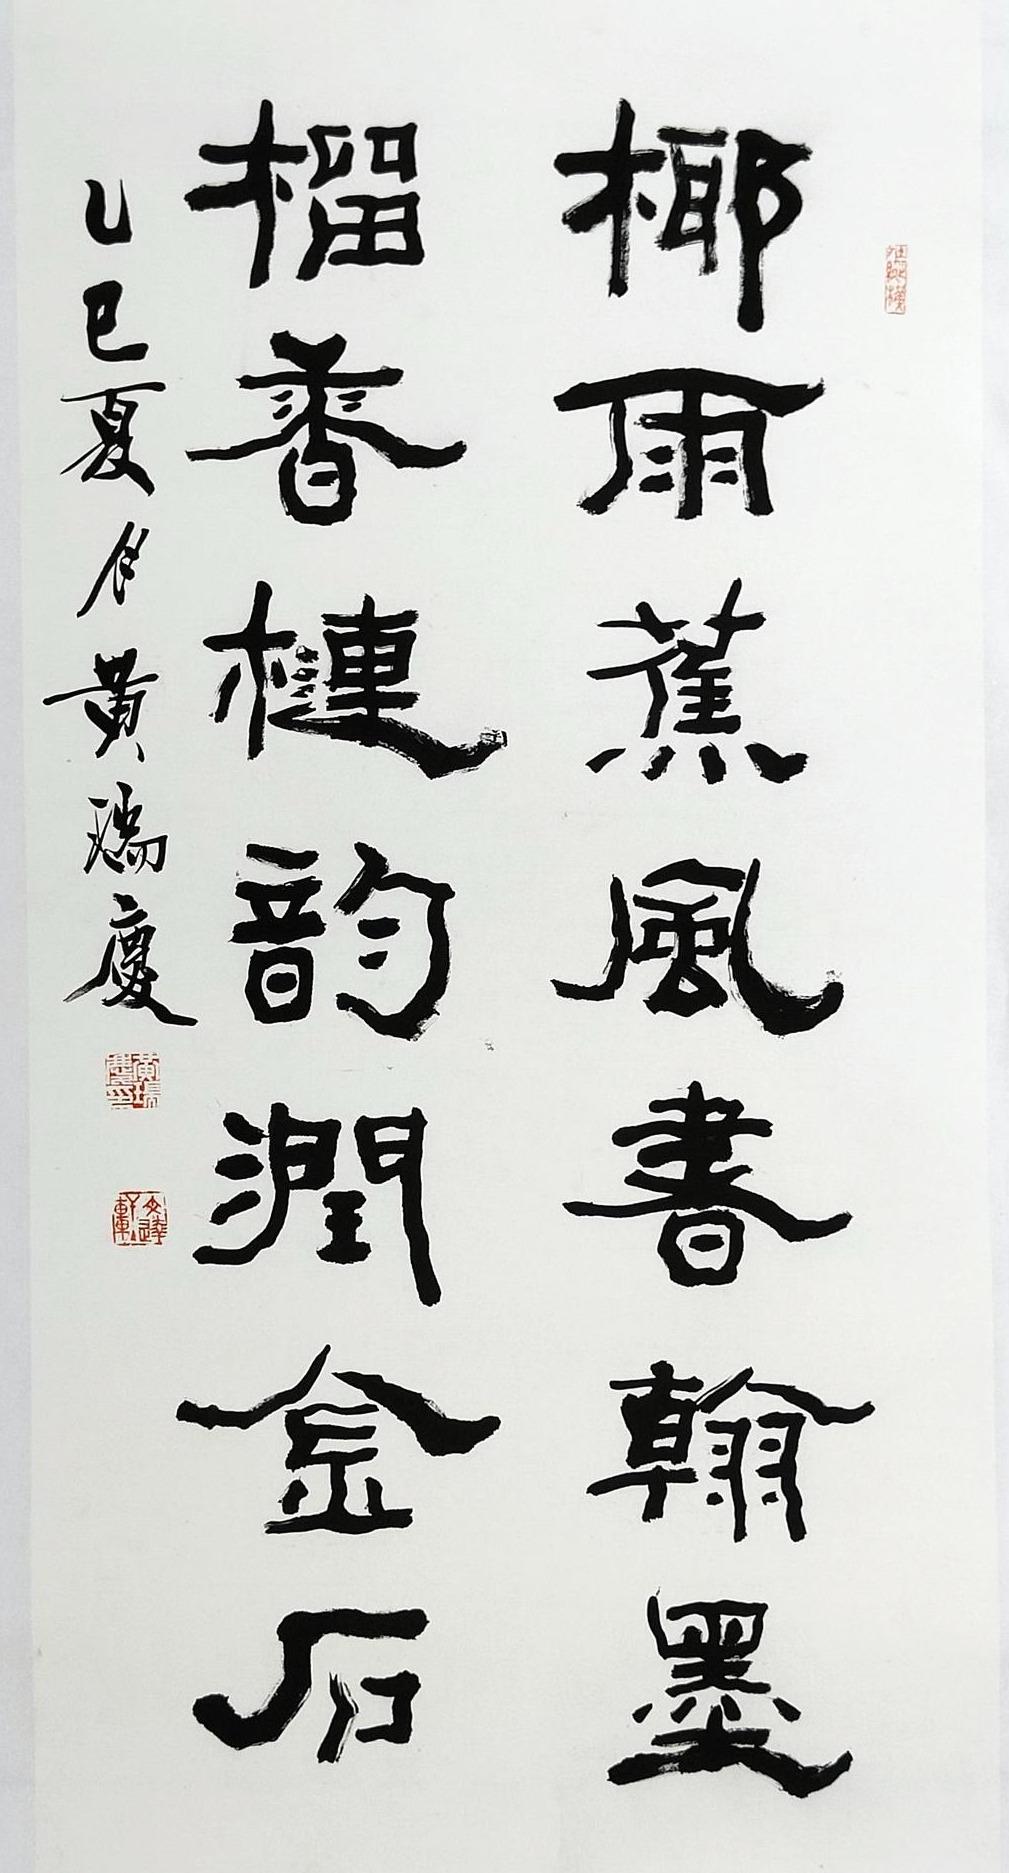 椰雨蕉風書翰墨
榴香槤韵潤金石
乙巳夏月黃瑞慶